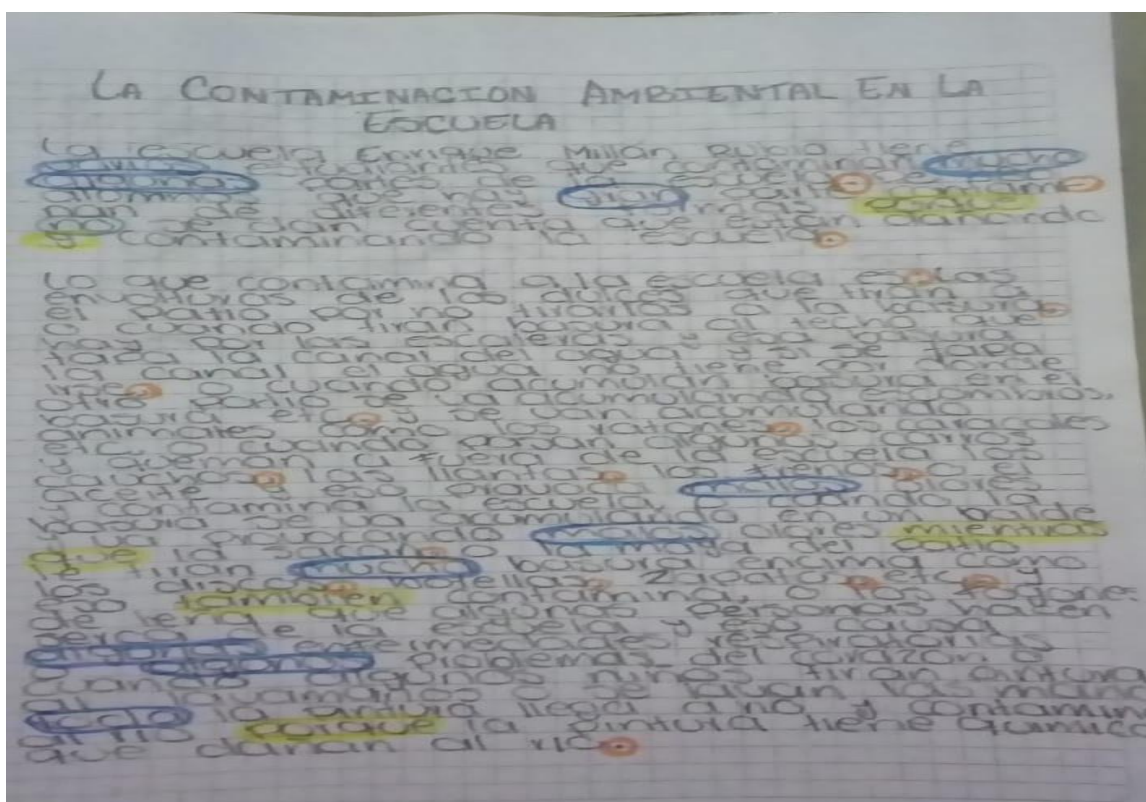 LA CONTAMINACION AMBIENTAL EN LA
ESCUELA
La escuela Enrique Millán Rubio tiene
varios estudiantes que contaminan mucho
algunas partes de la escuela
que hay
nan de diferentes formas porque
no se dan cuenta que están dañando
y contaminando la escuela.
Lo que contamina a la escuela es, las
envolturas de los dulces que tiran a
el patio por no tirarlos a la basura,
o cuando tiran basura al techo que
hay por las escaleras y esa basura
tapa la canal del agua y si se tapa
la canal el agua no tiene por donde
irse, o cuando acumulan basura en el
otro patio se va acumulando escombros,
basura, etc, y se van acumulando
animales como los ratones, los caracoles
etc. o cuando pasan algunos carros
y queman a fuera de la escuela los
cauchos, las llantas, los frenos, o el
aceite y eso provoca malos olores
y contamina la escuela, o cuando la
basura se va acumulando en un balde
y va provocando malos olores mientras
que la sacan, o la mata del patio
le tiran mucha basura encima como
los discos, botellas, zapatos, etc, y
eso también contamina, o los fogones
de leña que algunas personas hacen
cerca de la escuela y eso causa
algunas enfermedades respiratorias
y algunos problemas del corazón o
cuando algunos niños tiran pintura
al lavamanos o se lavan las mano
toda la pintura llega al río y contamin
al río porque la pintura tiene quimico
que dañan al río.